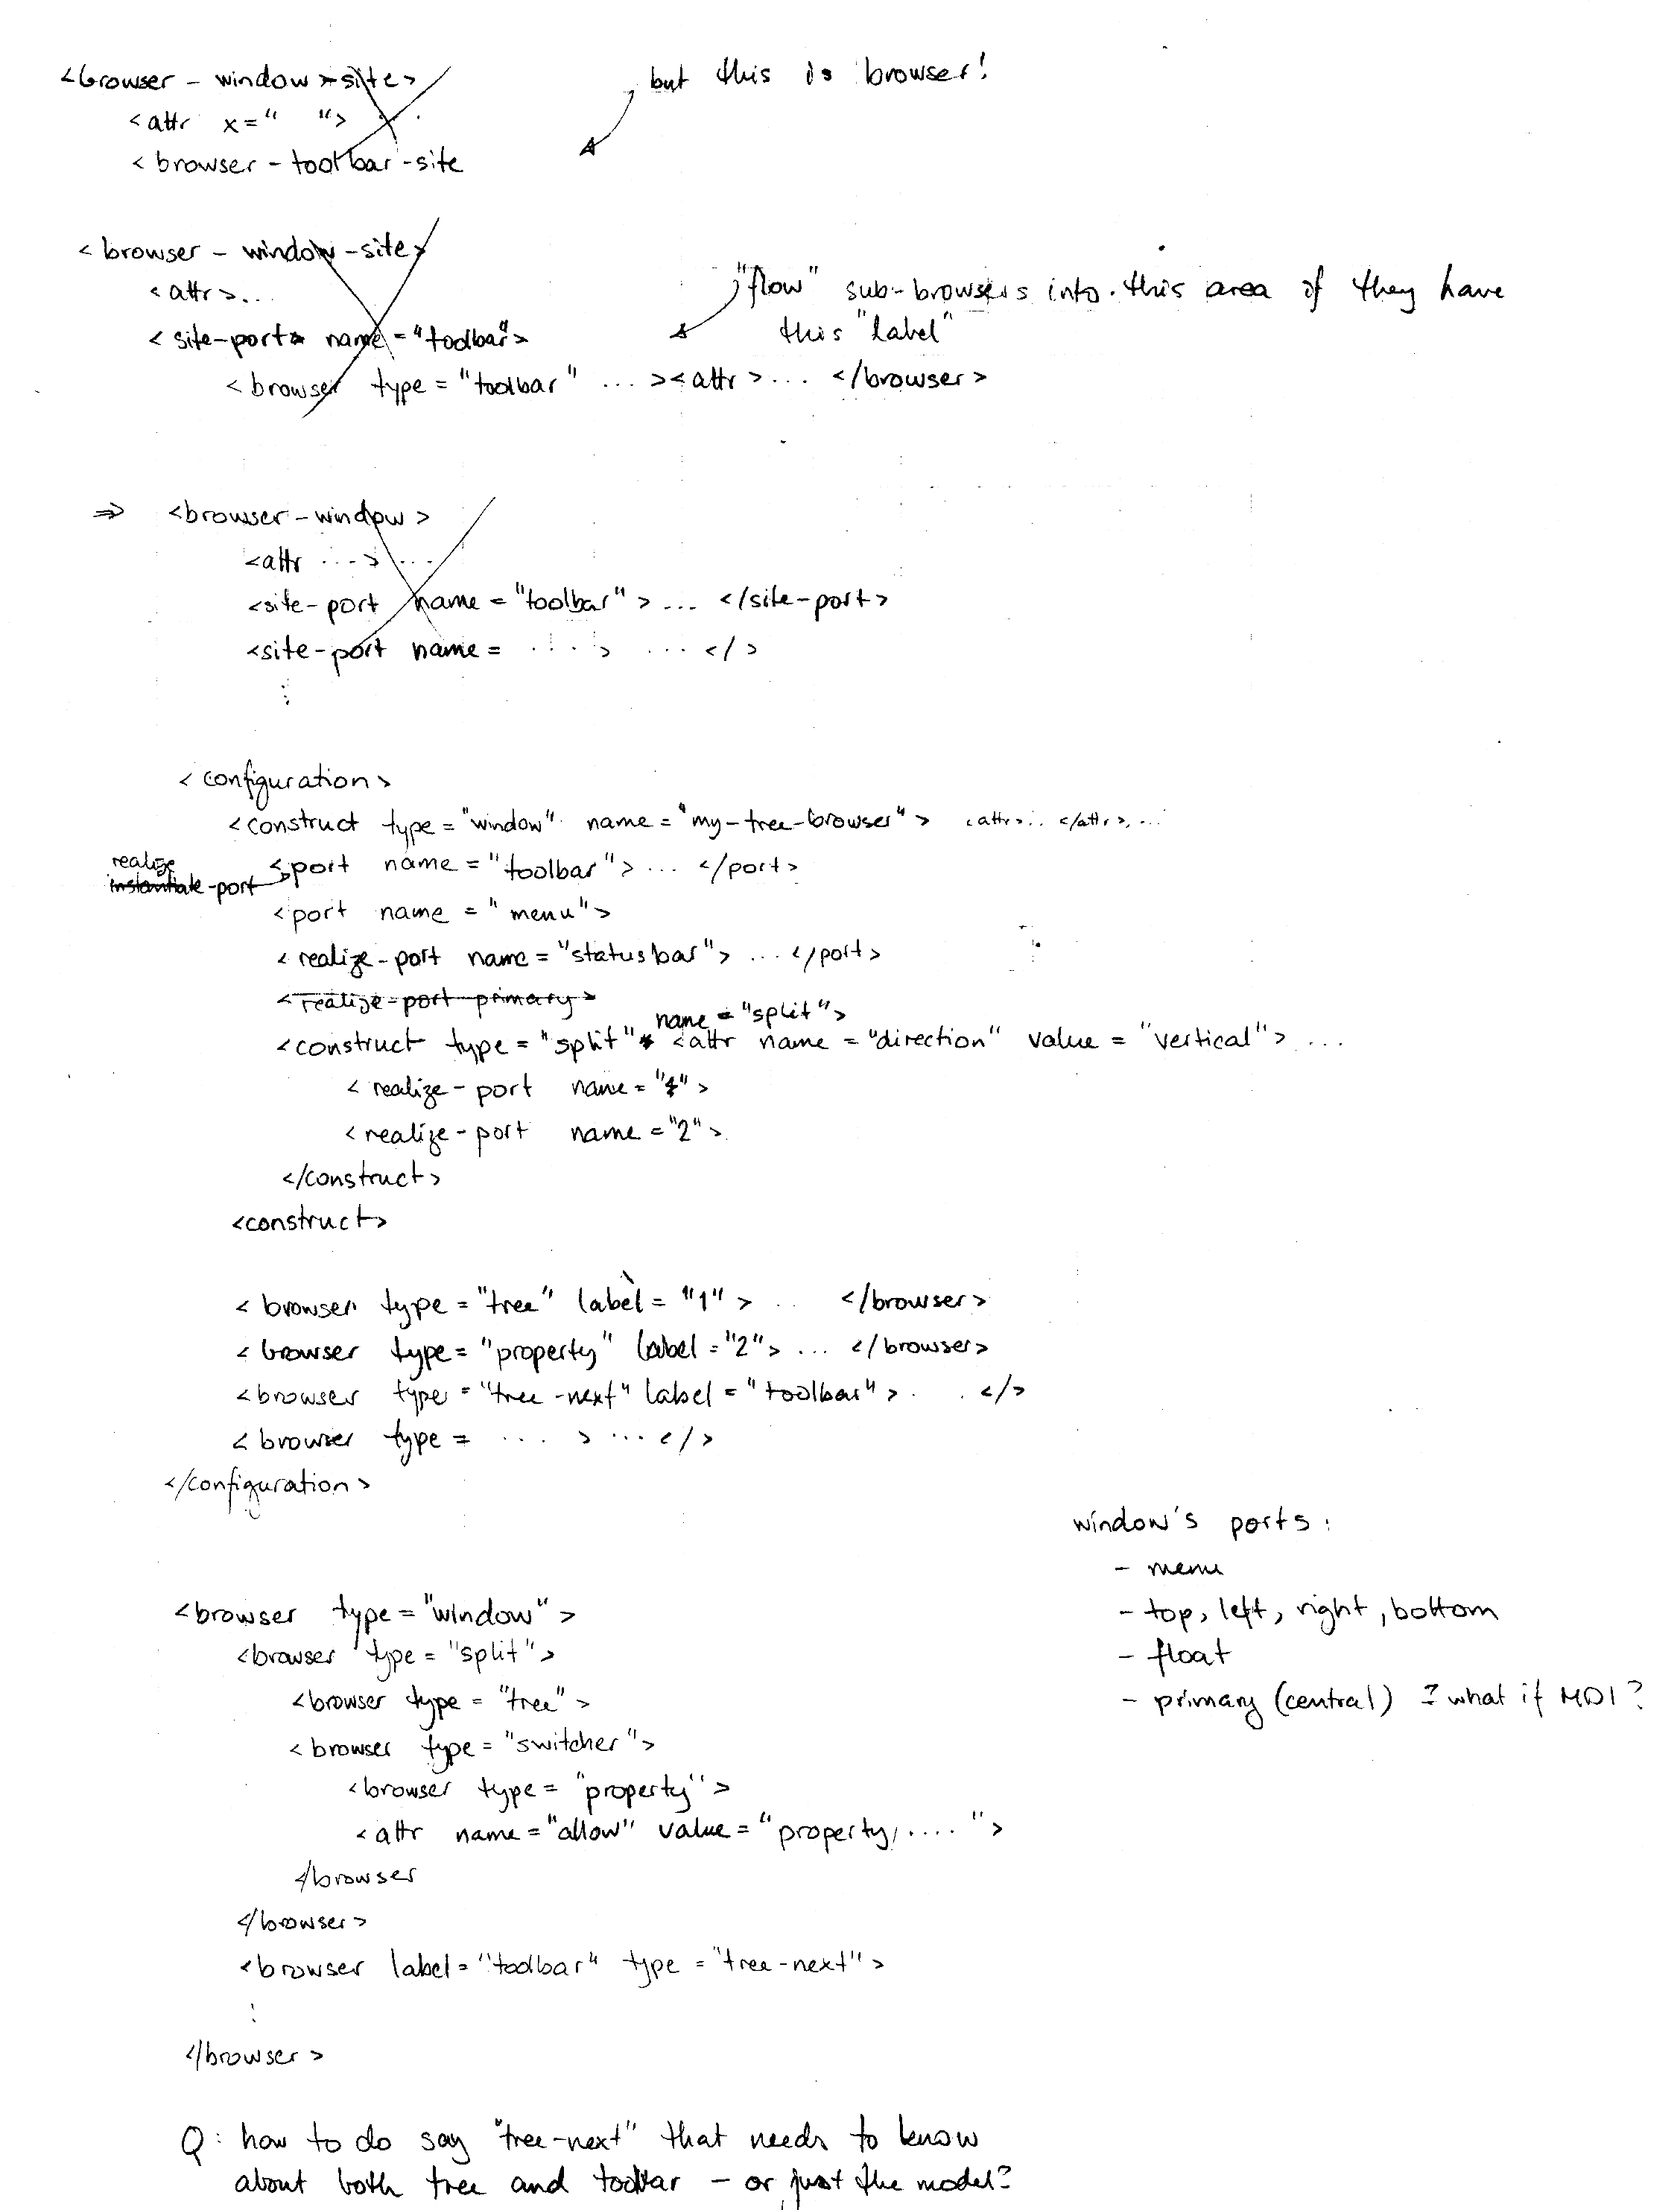 <browser-window-site>
but this is browser!
<attr x=" ">
<browser-toolbar-site
<browser-window-site>
<attr>...
"flow" sub-browsers into this area if they have
this "label"
<site-port name="toolbar">
<browser type="toolbar" ...><attr>... </browser>
⇒ <browser-window>
<attr ...> ...
<site-port name="toolbar">... </site-port>
<site-port name= ....> ... </>
⋮
<configuration>
<construct type="window" name="my-tree-browser"> <attr>.. </attr>, ...
realize
instantiate-port
<port name="toolbar">... </port>
<port name="menu">
<realize-port name="statusbar"> ... </port>
<realize-port primary>
name="split">
<construct type="split" <attr name="direction" value="vertical"> ...
<realize-port name="1">
<realize-port name="2">
</construct>
<construct>
<browser type="tree" label="1"> .. </browser>
<browser type="property" label="2"> ... </browser>
<browser type="tree-next" label="toolbar"> . . </>
<browser type= .... > ... </>
</configuration>
window's ports:
- menu
- top, left, right, bottom
- float
- primary (central) ? what if MDI?
<browser type="window">
<browser type="split">
<browser type="tree">
<browser type="switcher">
<browser type="property">
<attr name="allow" value="property, .... ">
</browser
</browser>
<browser label="toolbar" type="tree-next">
⋮
</browser>
Q: how to do say "tree-next" that needs to know
about both tree and toolbar - or just the model?